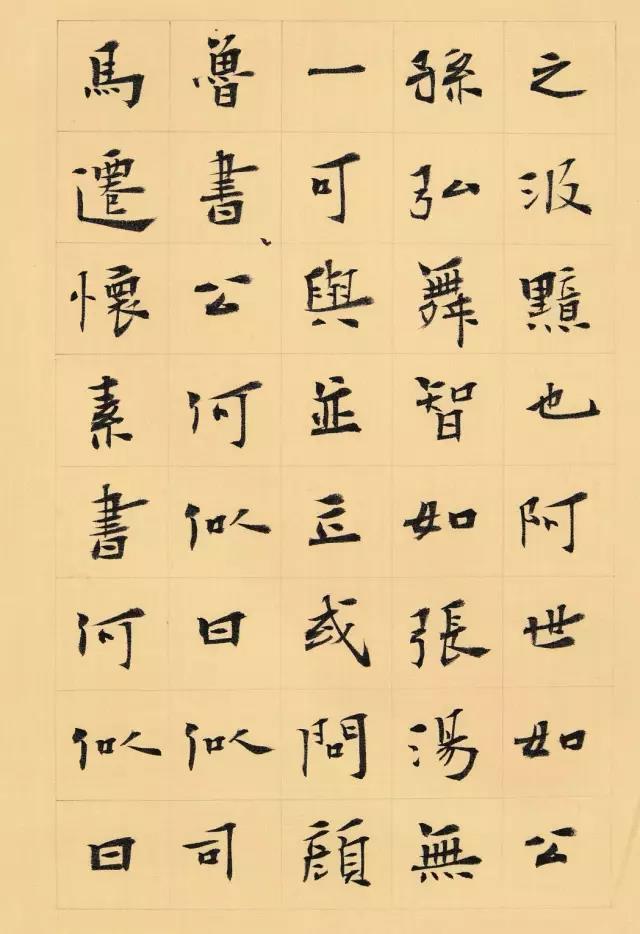 之汲黯也阿世如公
孫弘舞智如張湯無
一可與並立或問顏
魯書公何似曰似司
馬遷懷素書何似曰